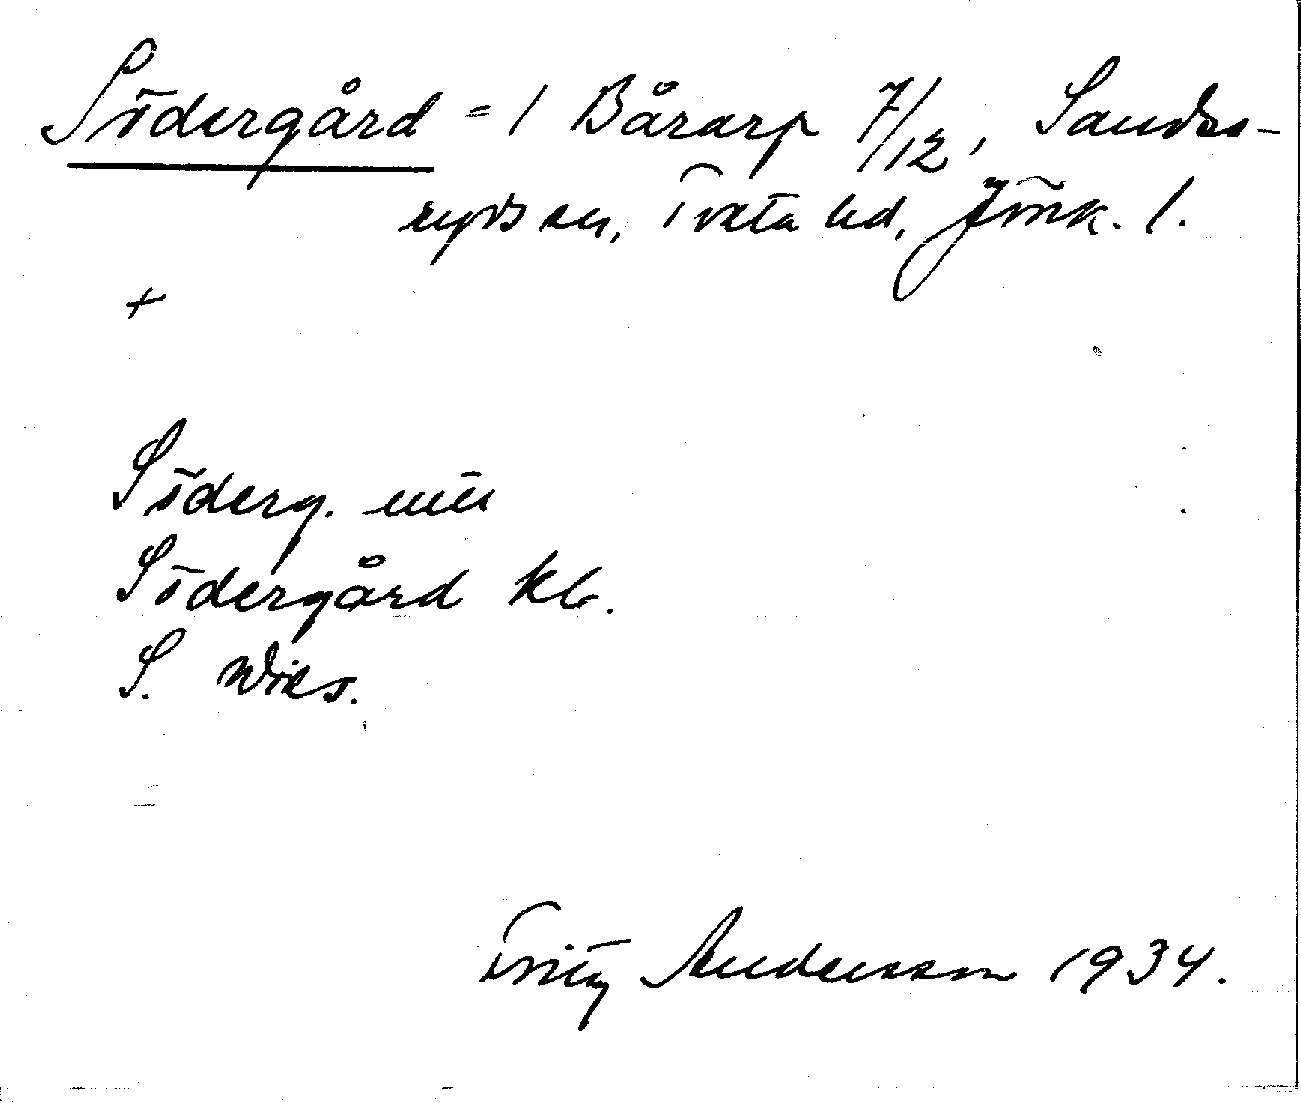 Södergård = 1 Bårarp 7/12, Sands-
ryds sn, Tveta hd, Jönk. l.
+
Söderg. uttr
Södergård kb.
S. Wiks.
Fritz Andersson 1934.